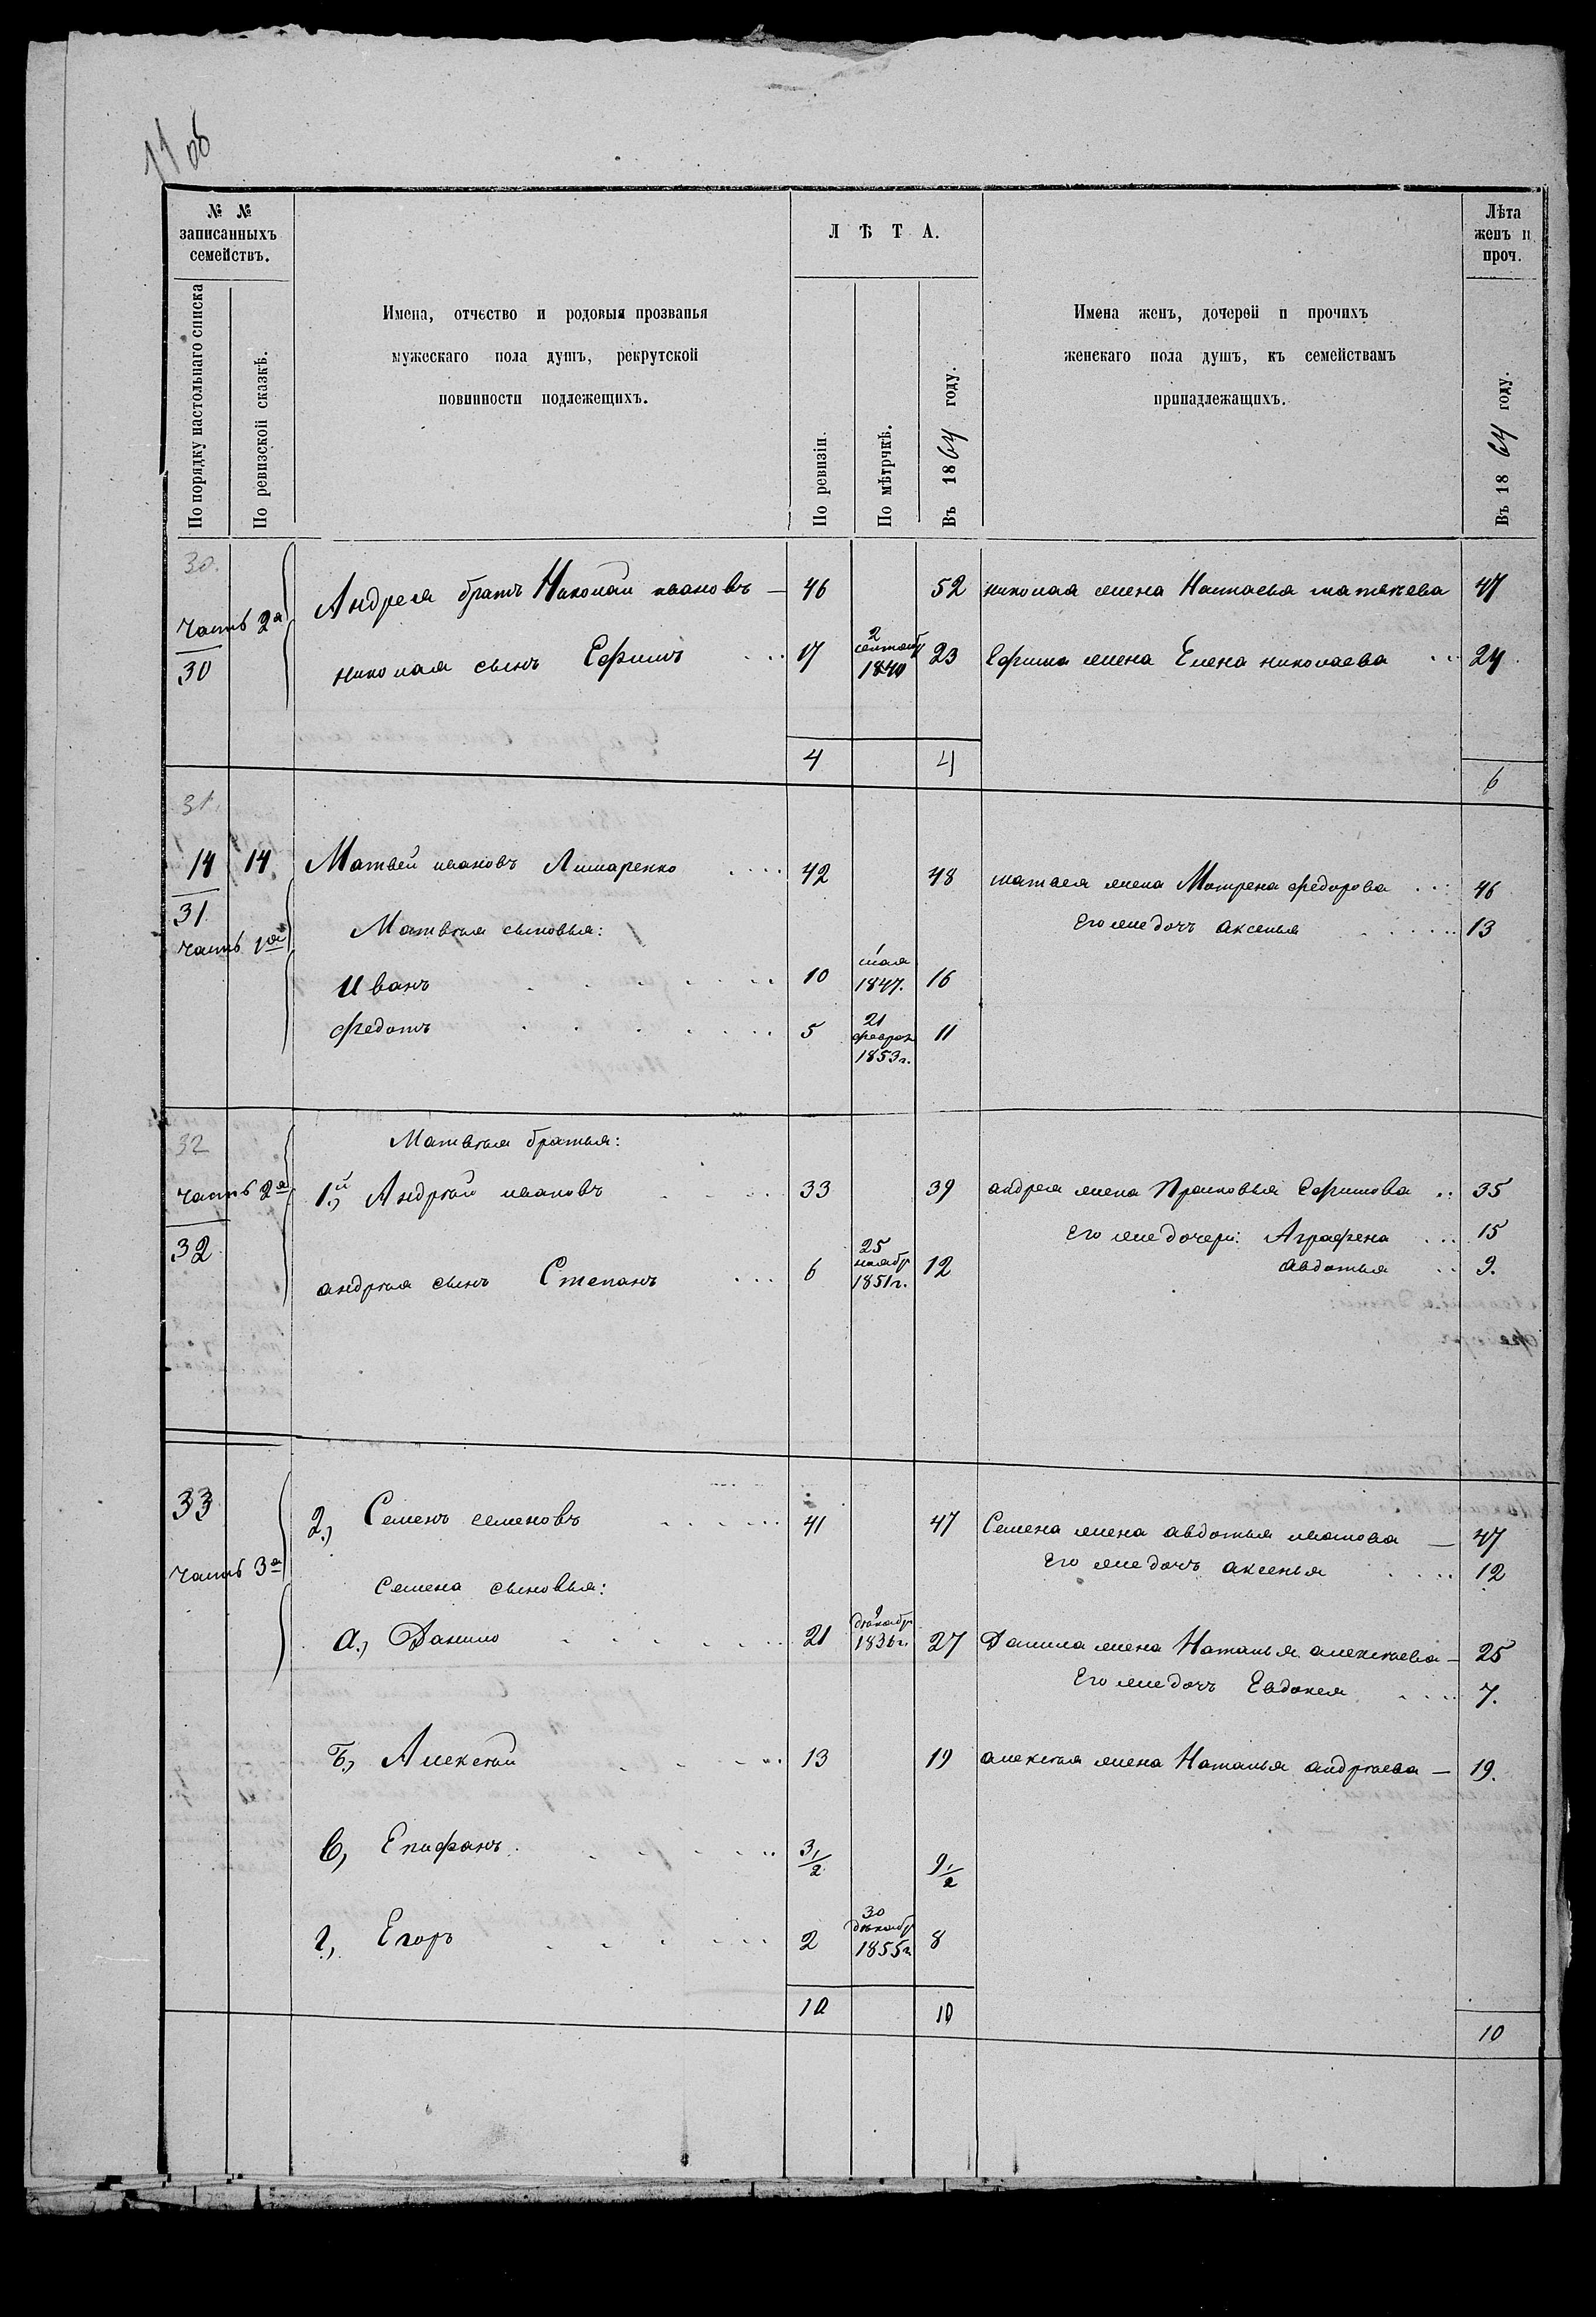 11 об
№ №
записанныхъ
семействъ.
По порядку настольнаго списка
По ревизской сказкѣ.
Имена, отчество и родовыя прозванья
мужескаго пола душъ, рекрутской
повинности подлежещихъ.
Л Ѣ Т А.
По ревизіи.
По мѣтрчкѣ.
Въ 1864 году.
Имена женъ, дочерей и прочихъ
женскаго пола душъ, къ семействамъ
принадлежащихъ.
Лѣта
женъ и
проч.
Въ 1864 году.
30.
Часть 2я
30
Андрея братъ Николай ивановъ — 46 52 николая жена Наталья матвѣева 47
николая сынъ Ефимъ 17 2 сентабр 1840 23 Ефима жена Елена николаева 24
4 4 6
31.
14 14. Матвей ивановъ Лимаренко 42 48 матвея жена Матрена федорова 46
31
часть 1я
Матвѣя сыновья: его же дочь аксенья 13
Иванъ 10 1 мая 1847. 16
Федотъ 5 21 феврал 1853г. 11
32
Матвѣя братья:
часть 2я 1й) Андрѣй ивановъ 33 39 андрея жена Прасковья Ефимова 35
32
его же дочери: Аграфена 15
андрѣя сынъ Степанъ 6 25 ноябр 1851г. 12 авдотья 9.
33
часть 3я
2.) Семенъ семеновъ 41 47 Семена жена авдотья иванова — 47
его же дочь аксенья 12
семена сыновья:
а.) Данило 21 9 декабр 1836г. 27 Данила жена Наталья алексѣева — 25
его же дочь Евдокея 7.
Б.) Алексѣй 13 19 алексѣя жена Наталья андрѣева — 19.
в, Епифанъ. 3 1/2 9 1/2
г, Егоръ 2 30 декабр 1855г 8
10 10 10